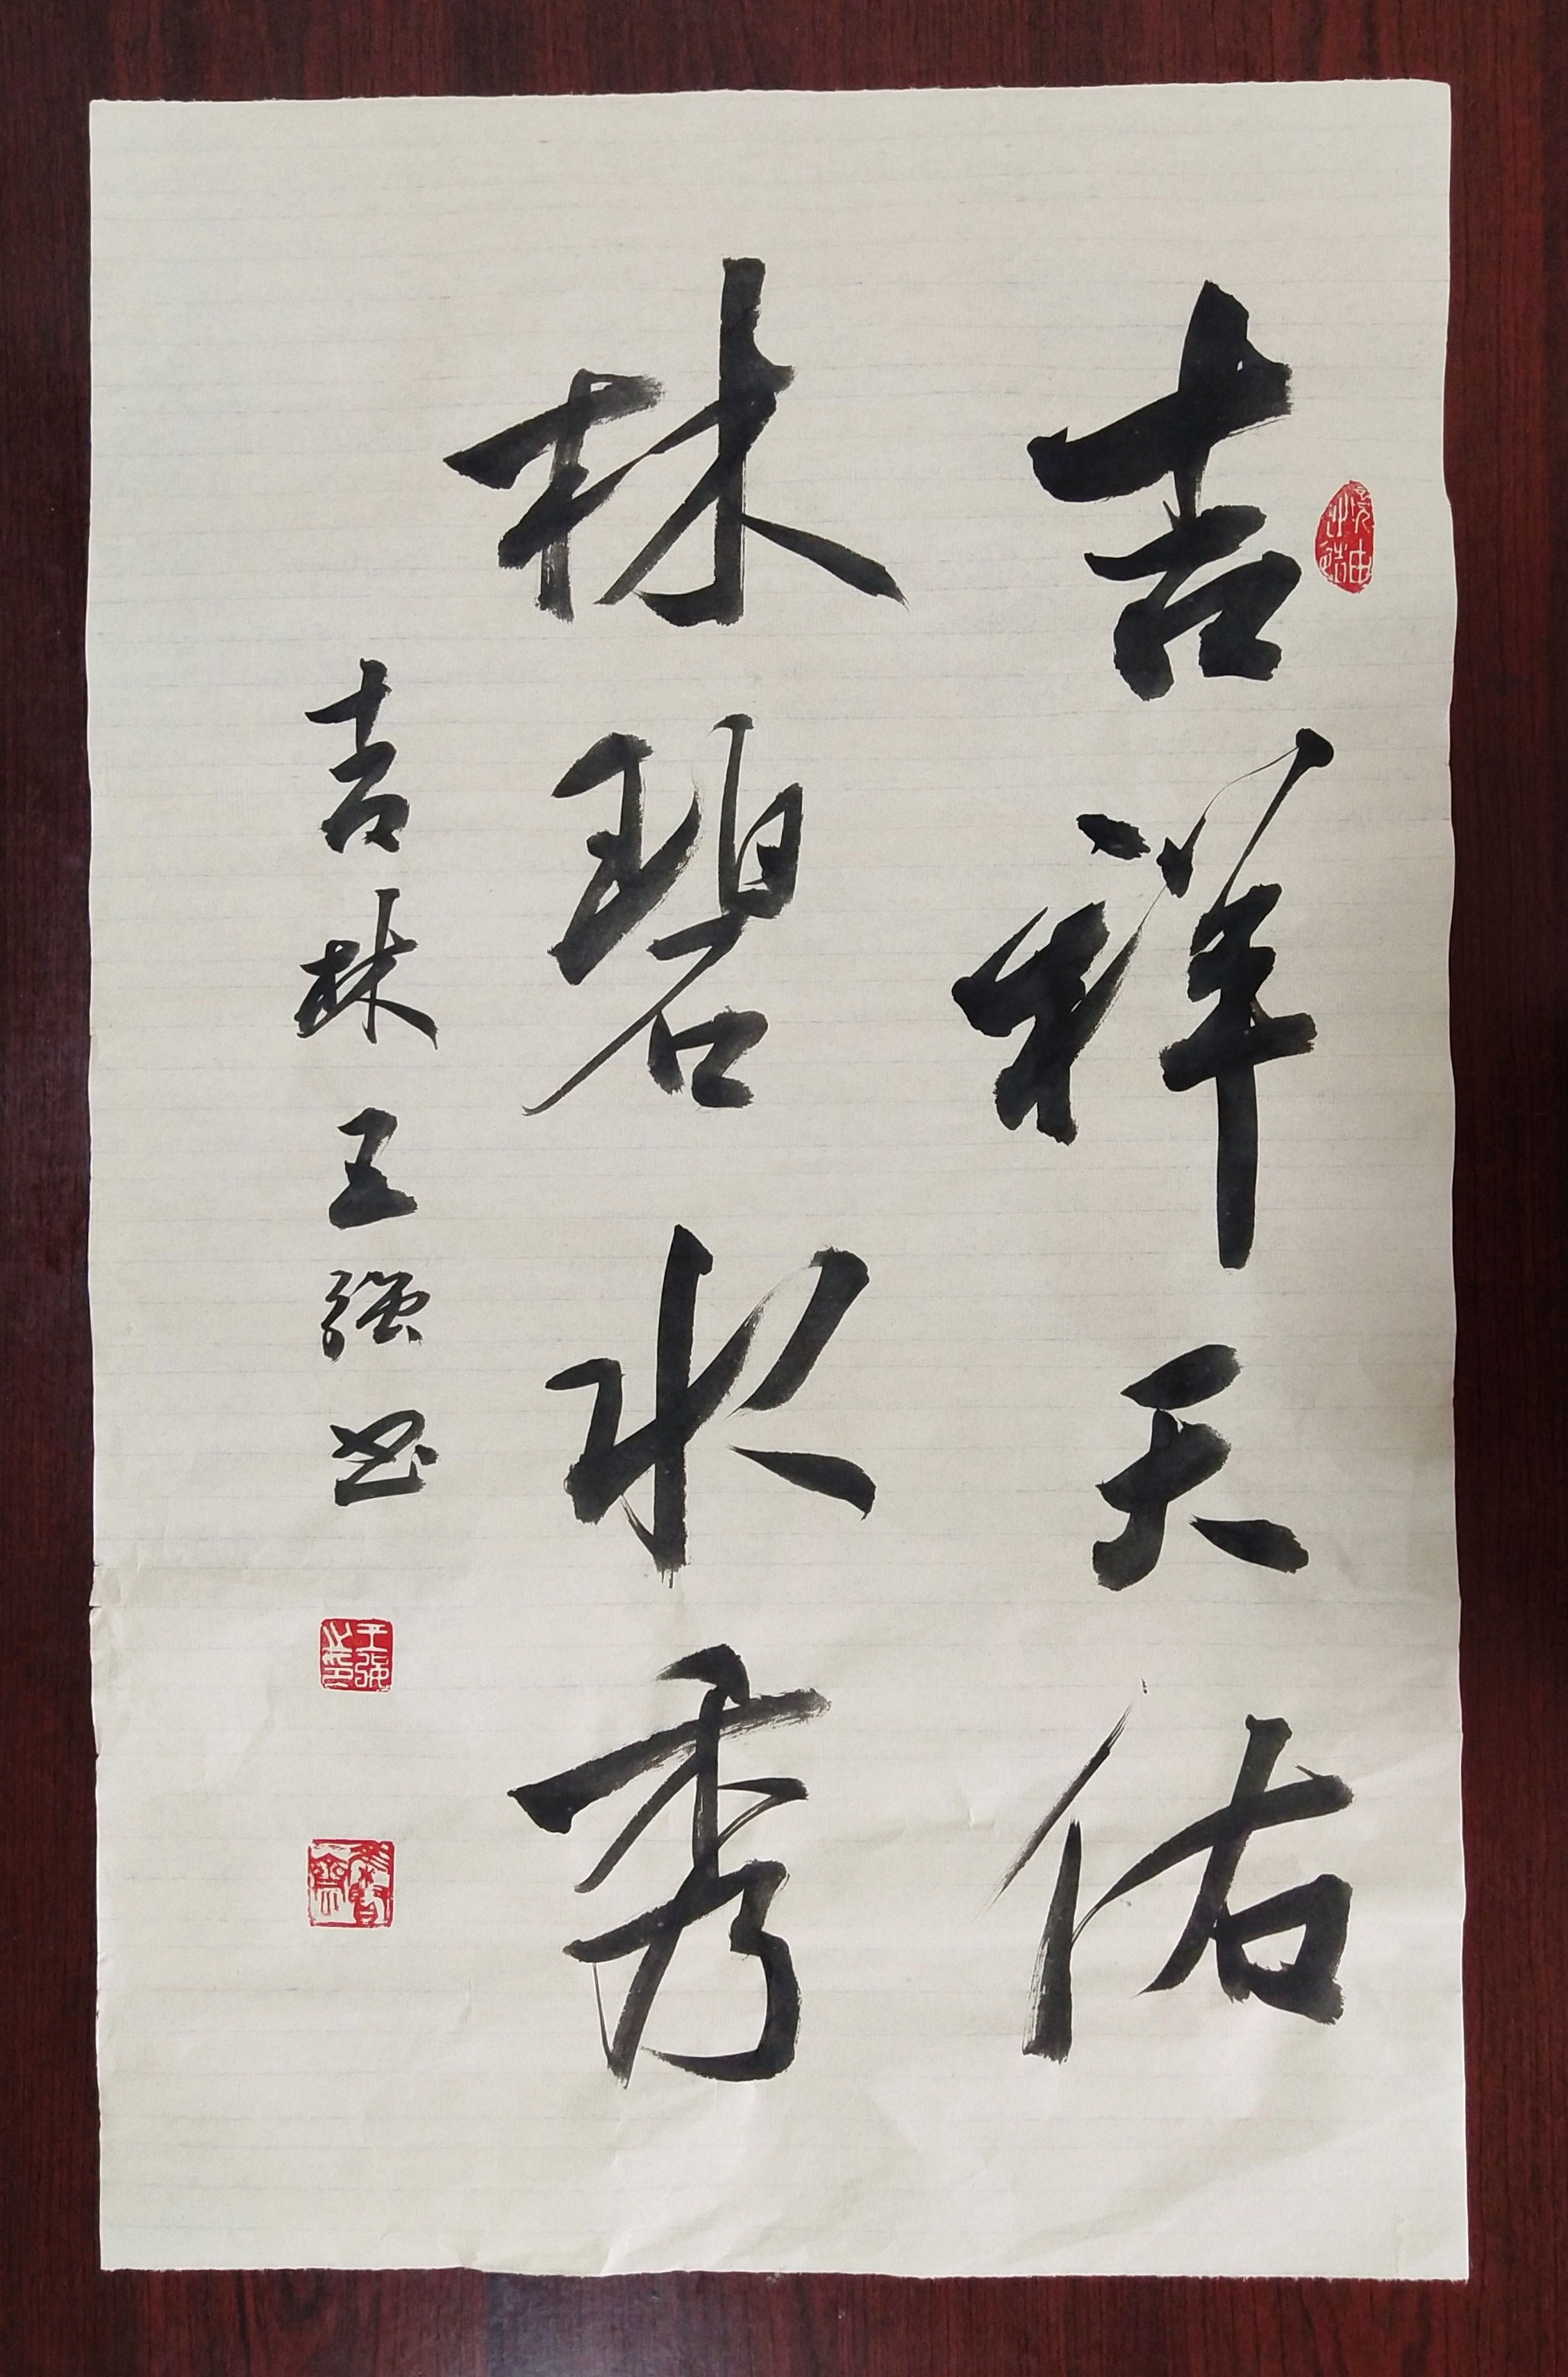 吉祥天佑
林碧水秀
吉林王强书
王强之印